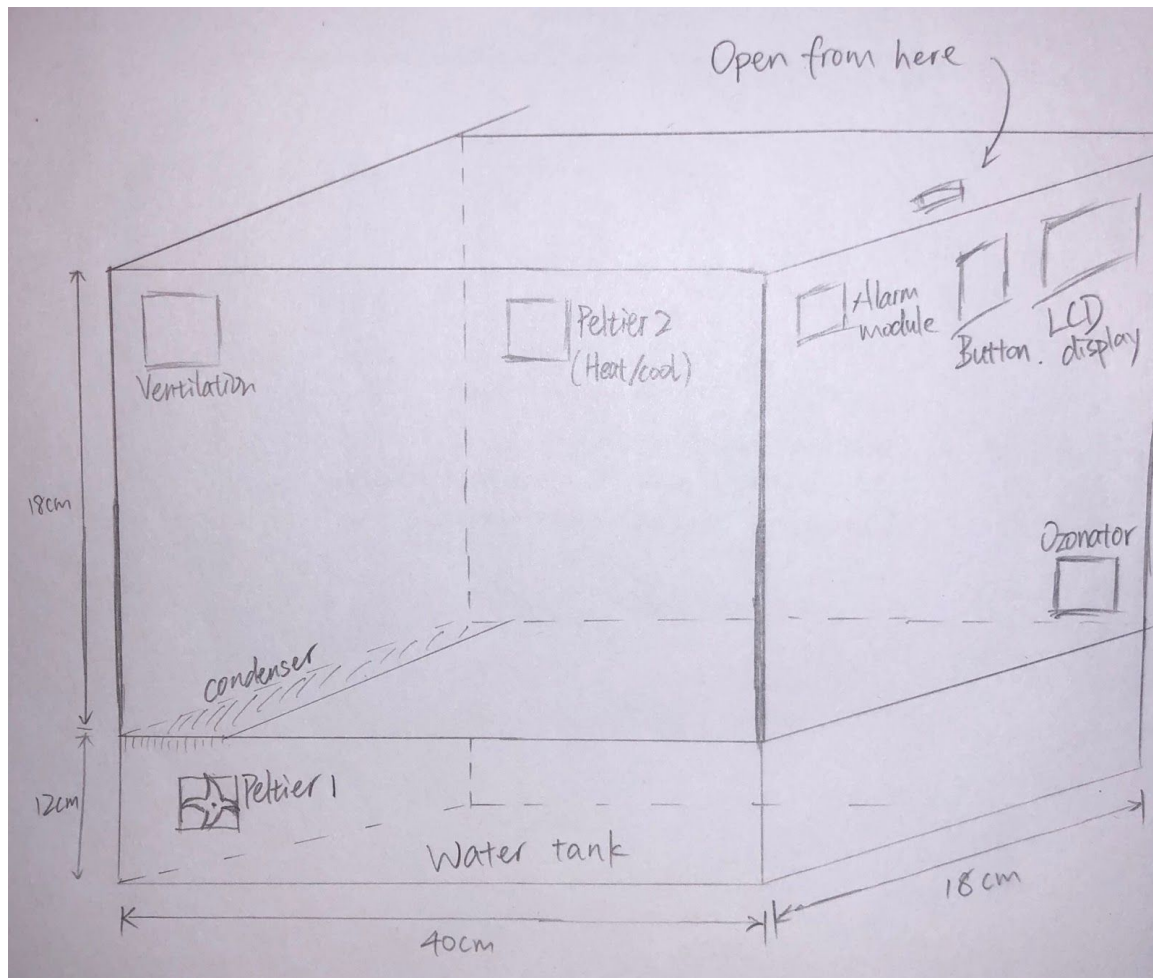 Open from here
Ventilation
Peltier 2
(Heat/cool)
Alarm
module
Button.
LCD
display
18cm
Ozonator
condenser
12cm
Peltier 1
Water tank
40cm
18cm